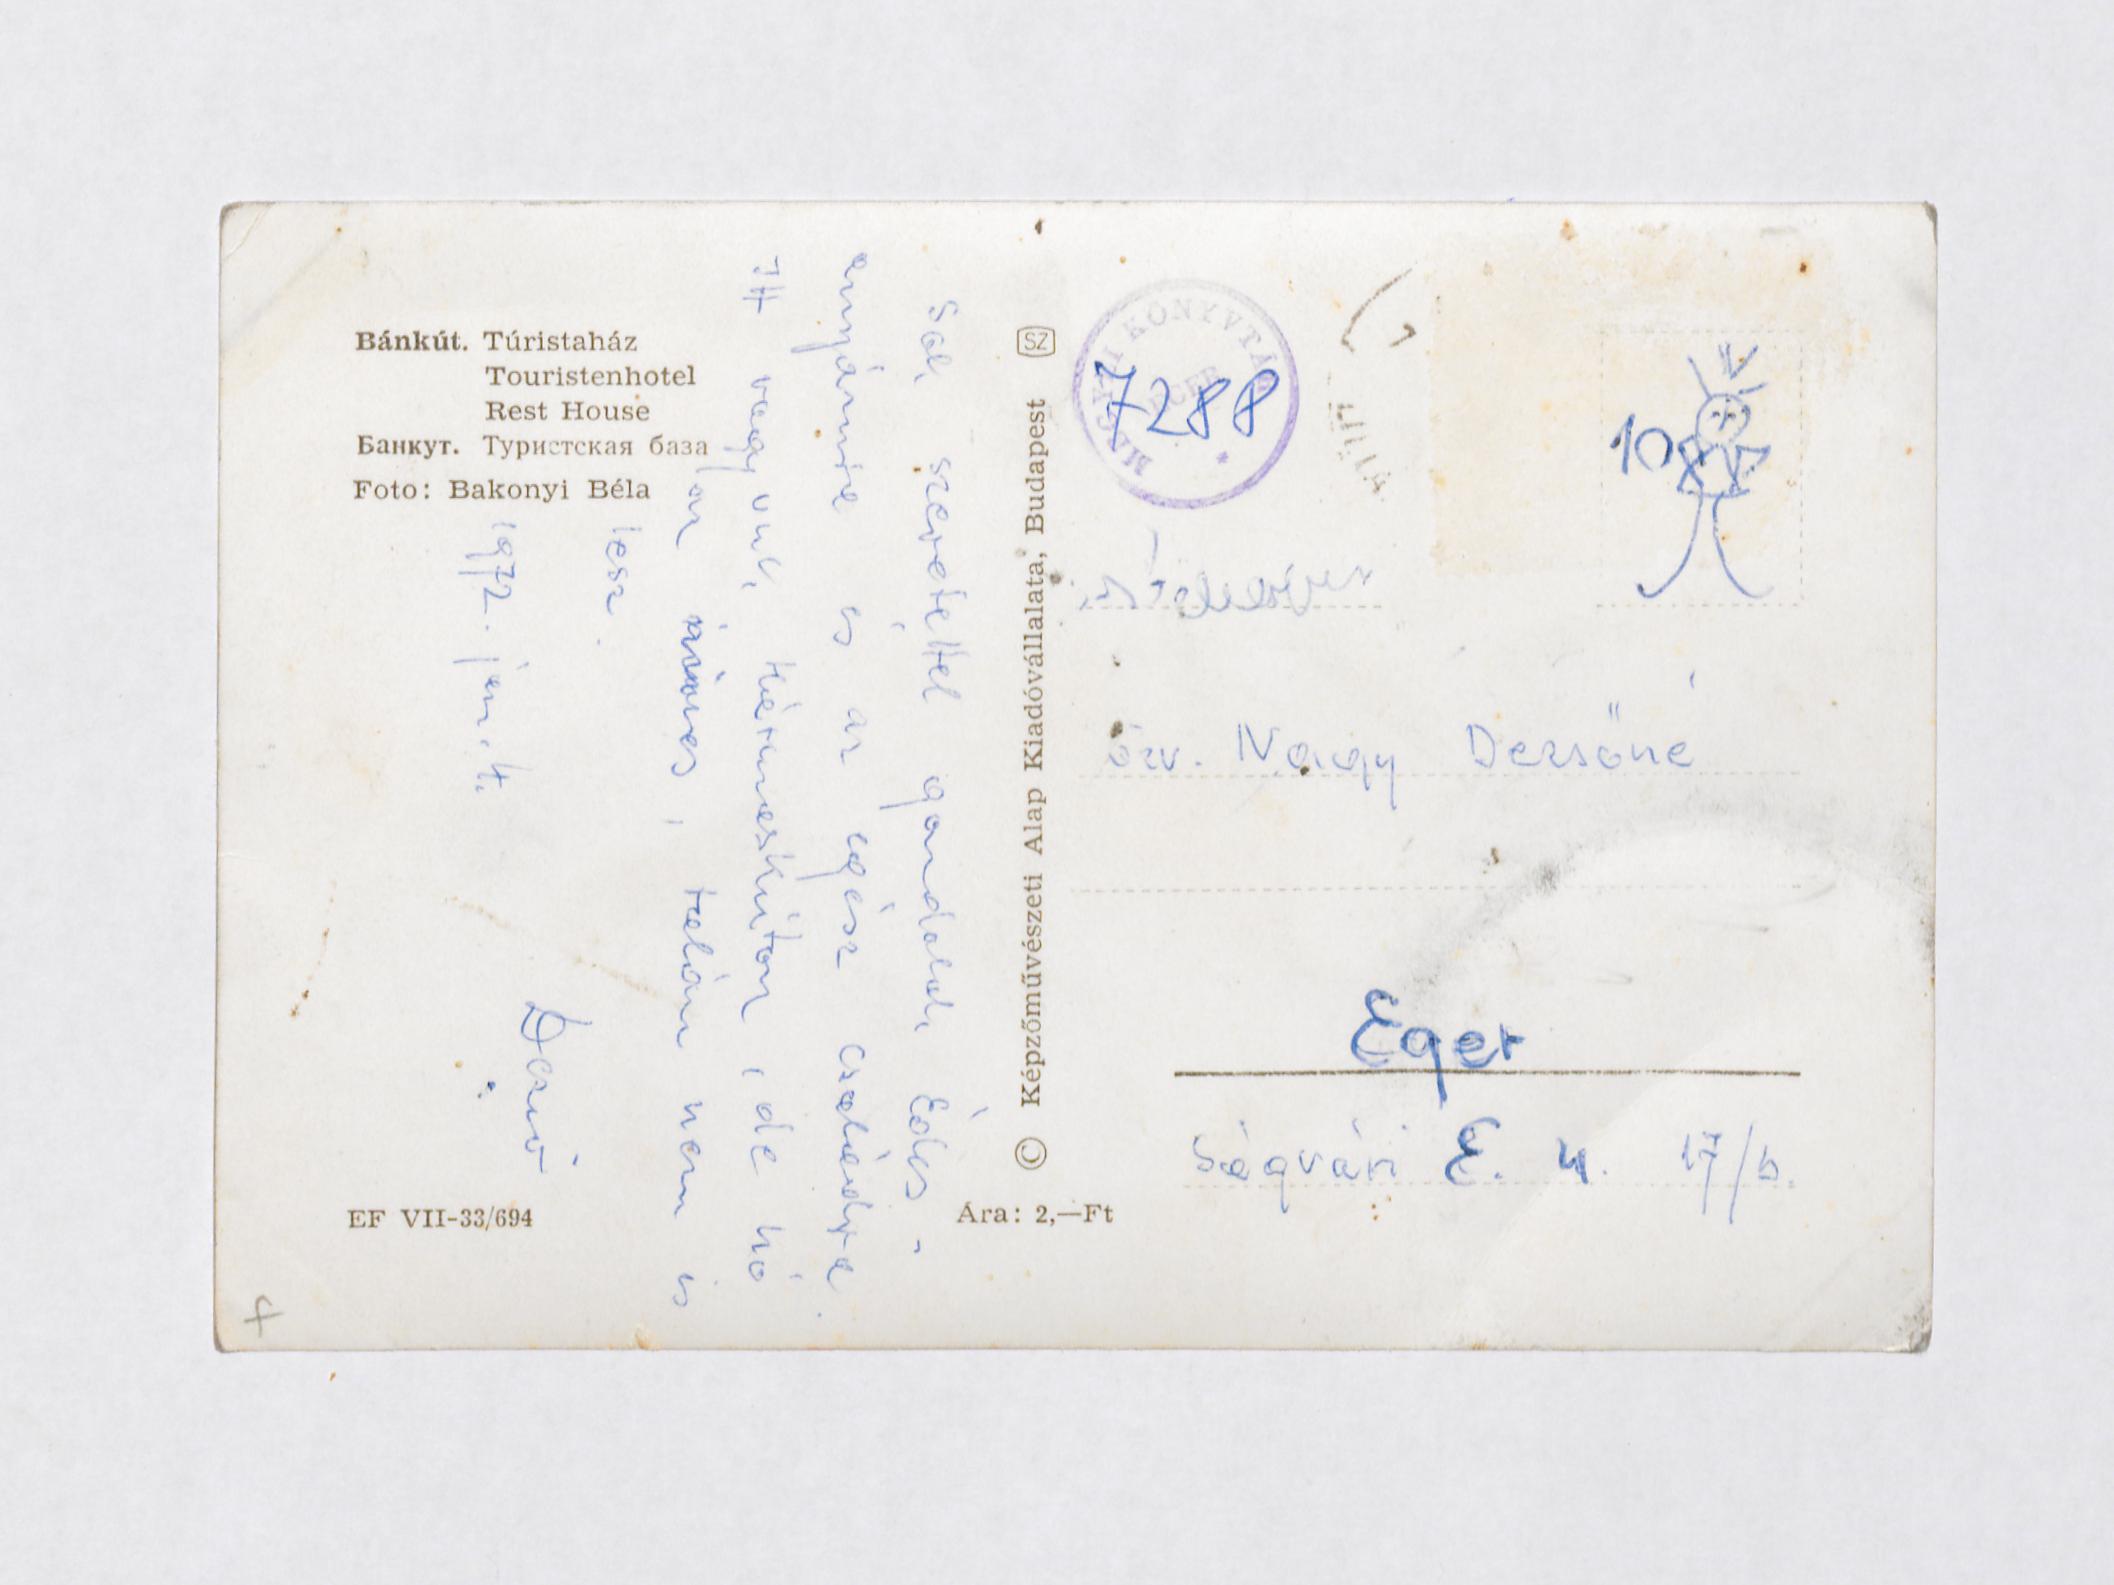 Bánkút. Túristaház
Touristenhotel
Rest House
Банкут. Туристская база
Foto: Bakonyi Béla
Sok szeretettel gondolok Édes-
anyámra és az egész családra.
Itt vagyunk Hármaskúton, de hó
on sincs, talán nem is
lesz.
1972. jan. 4.
Dezső
EF VII-33/694
Ára: 2,—Ft
© Képzőművészeti Alap Kiadóvállalata, Budapest
SZ
MEGYEI KÖNYVTÁR
EGER
7288
10
özv. Nagy Dezsőné
Eger
Ságvári E. u. 17/b.
4